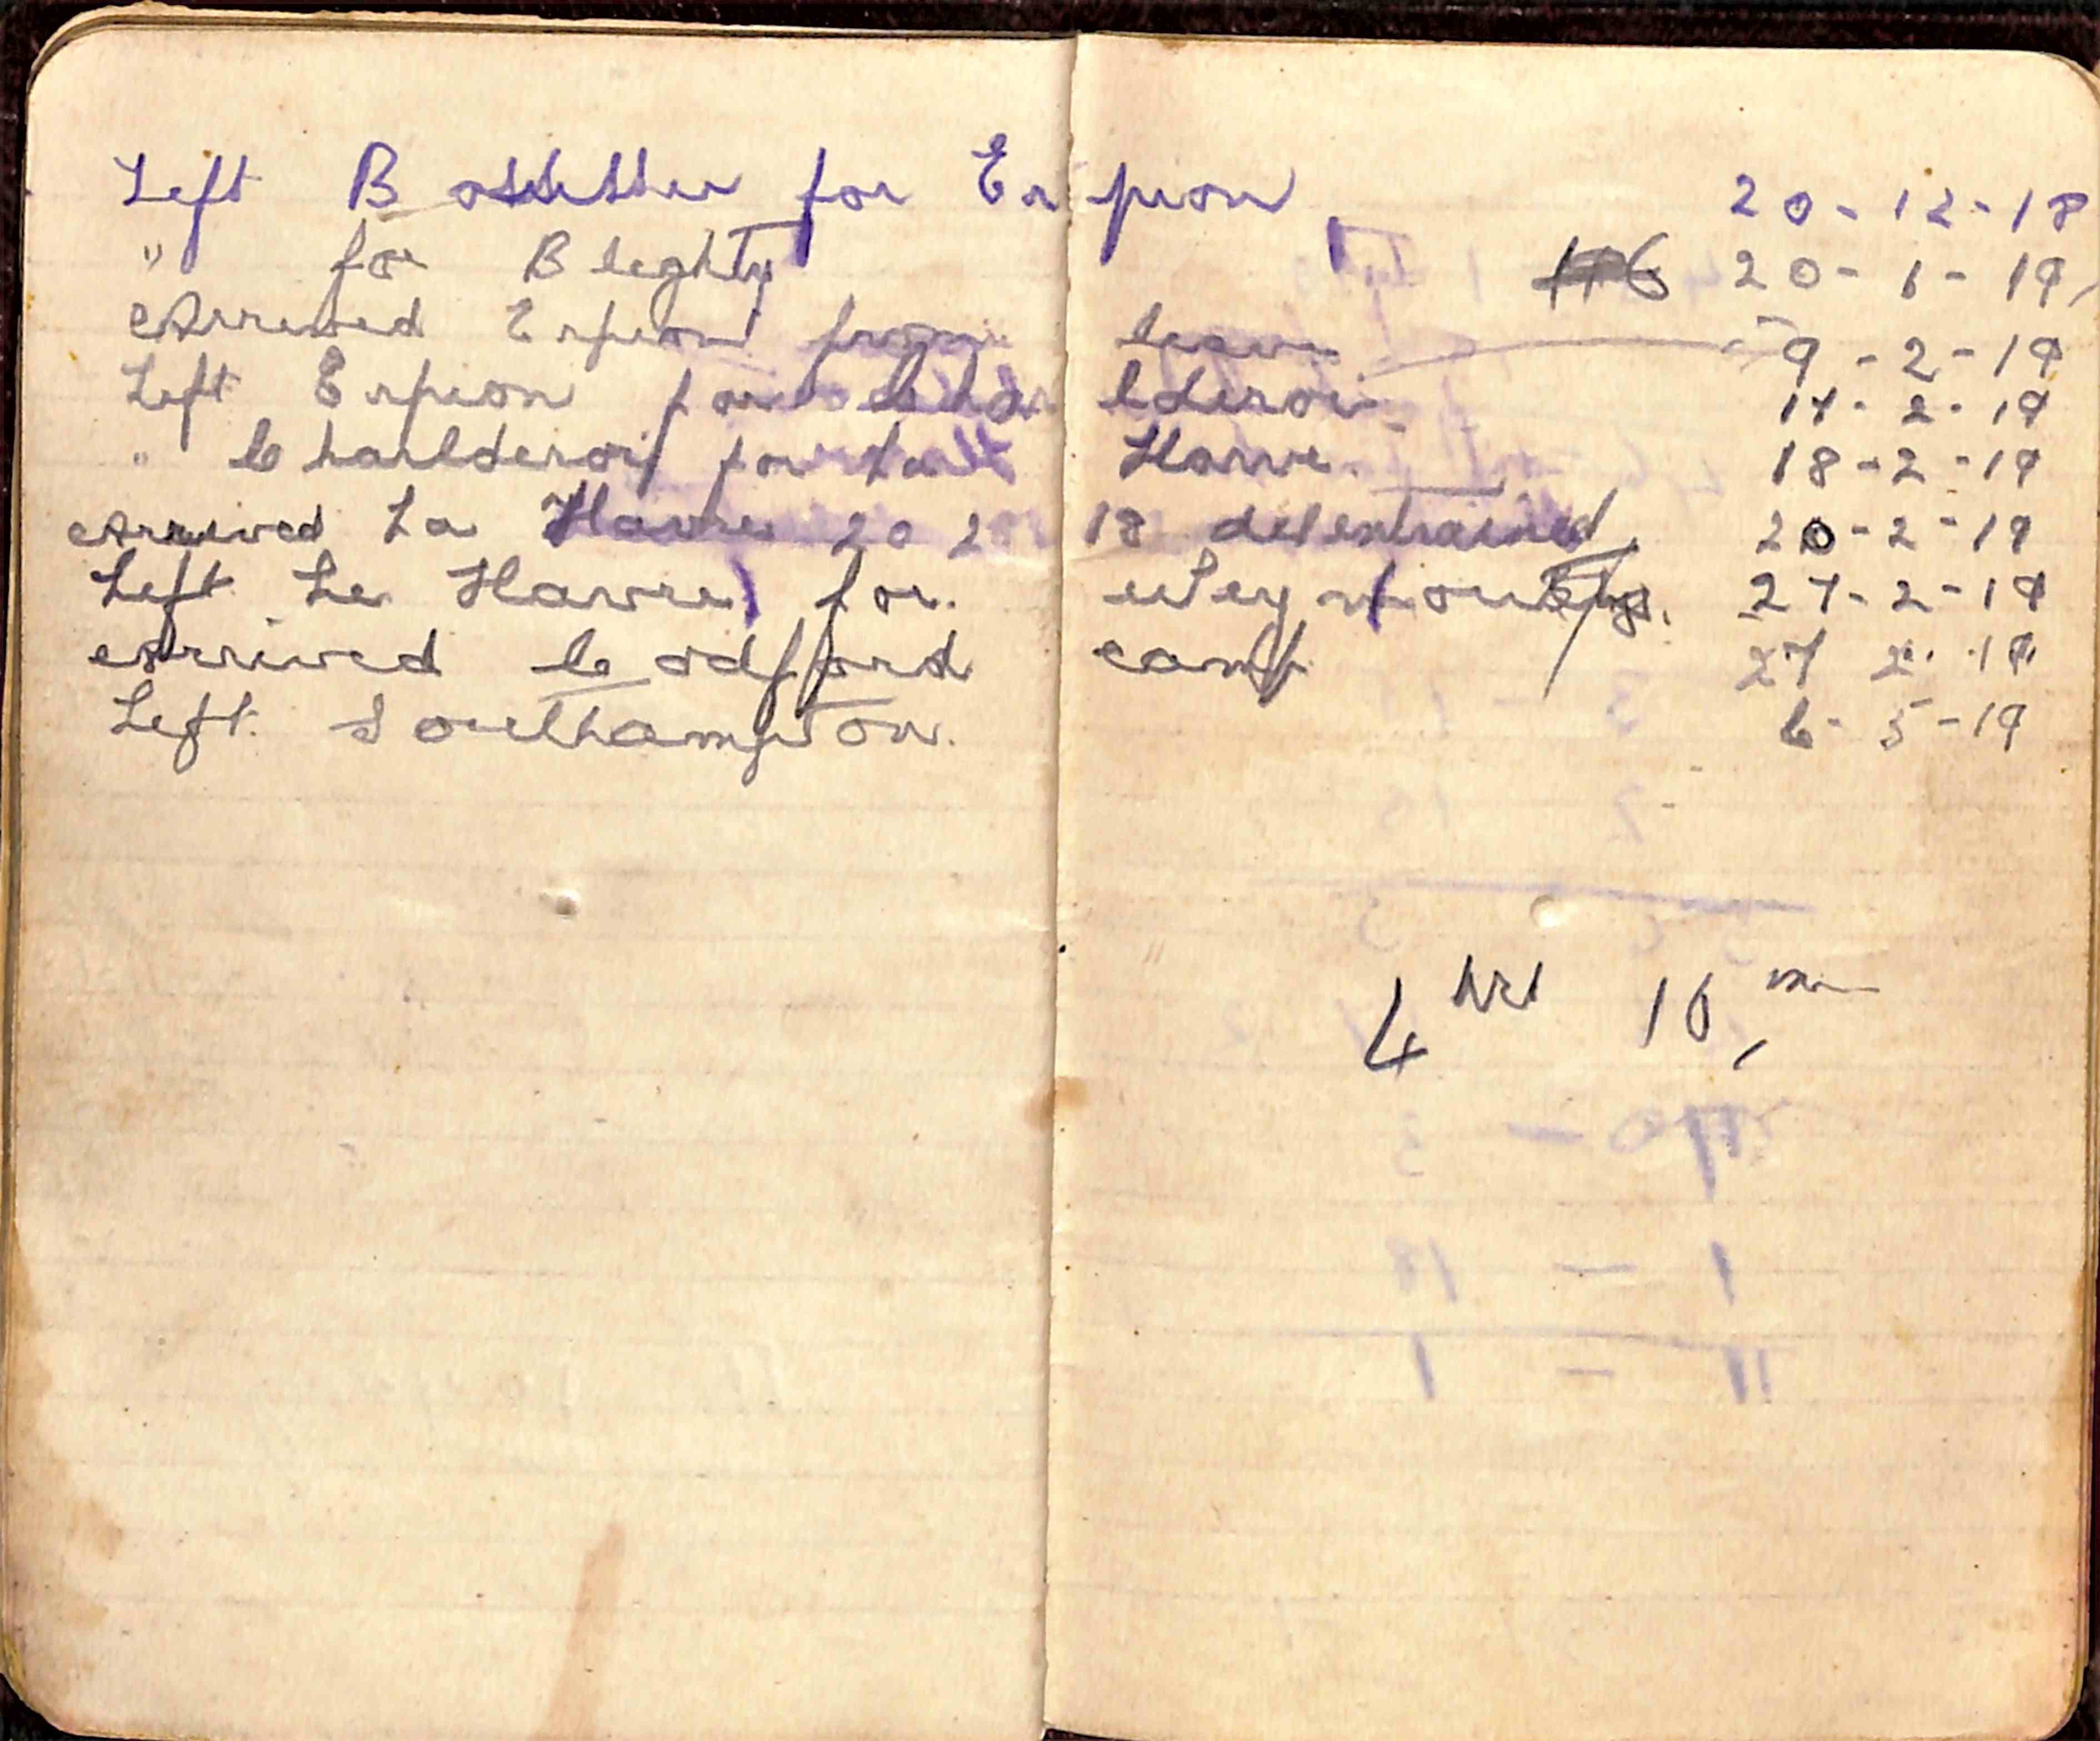 Left for Erpion 20-12-18
" for Bleghty 20-1-19
Arrived Erpion from leave 9-2-19
Left Erpion for 14-2-19
" Charlderoi for La Havre. 18-2-19
Arrived La Havre 20 2 18 detentrained 20-2-19
Left Le Havre for. 27-2-19
Arrived Codfford camp 27 2 19
Left Southampton. 6-5-19
4 hrs 10 m